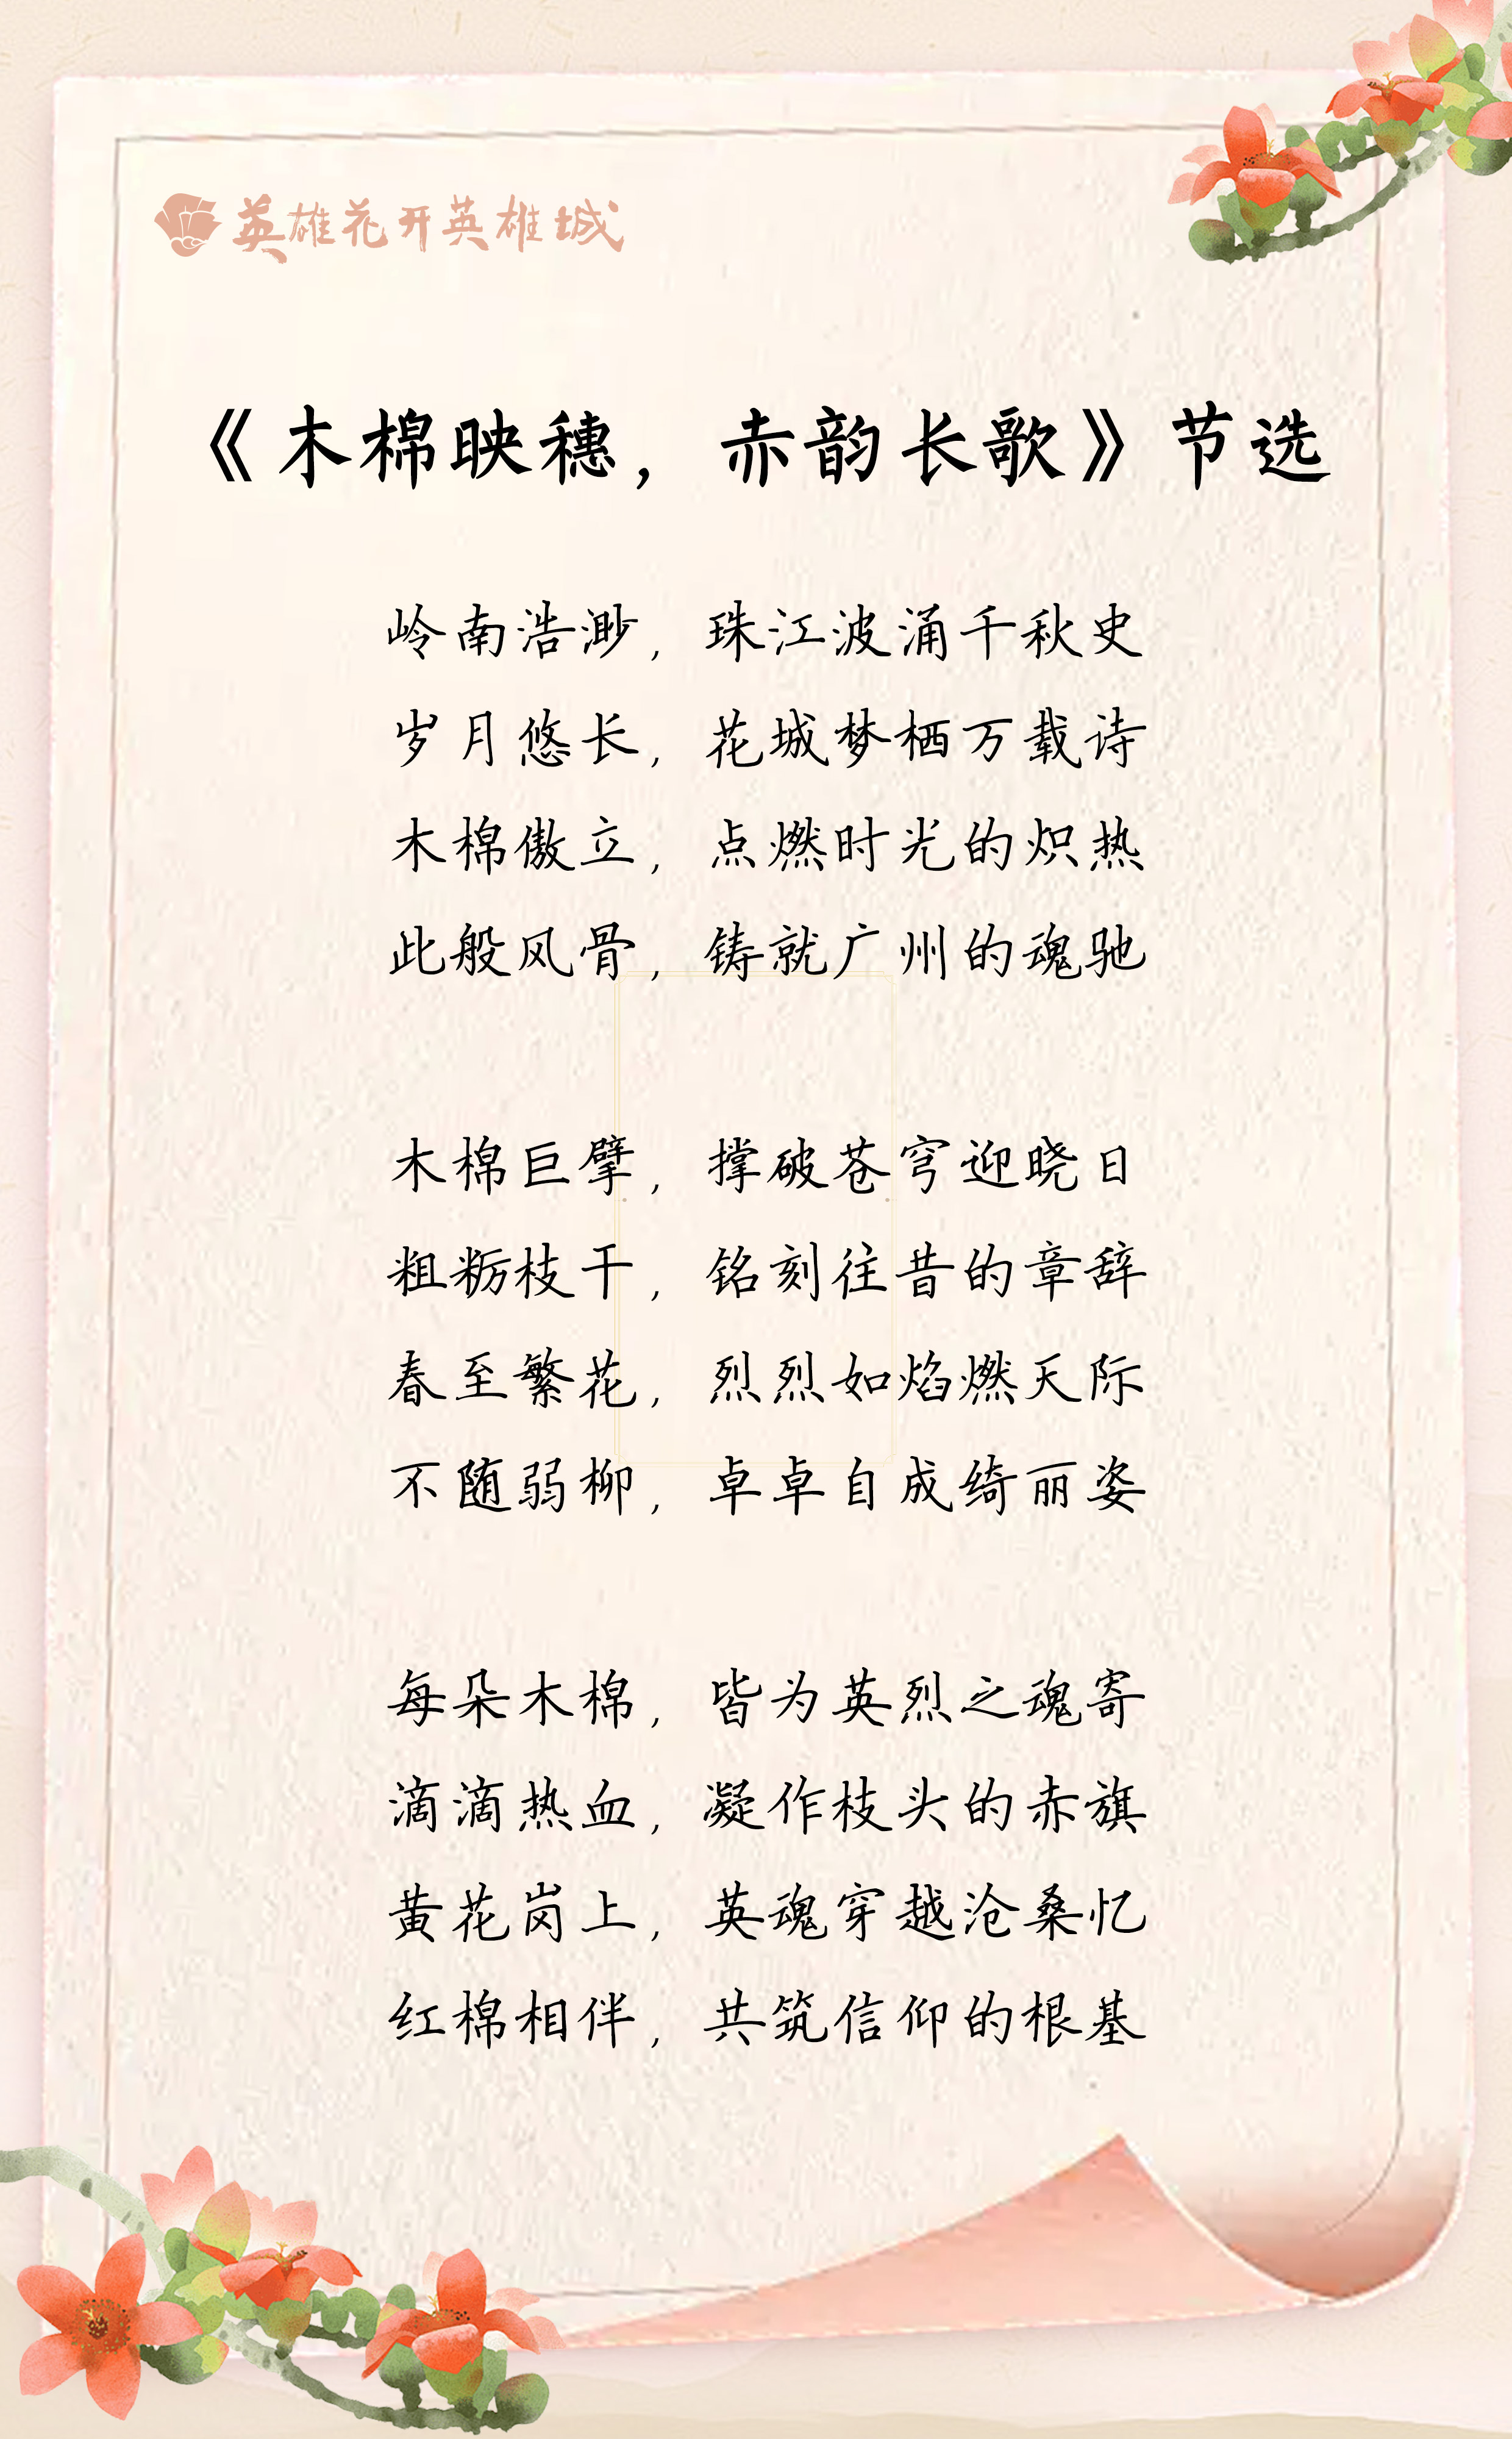 英雄花开英雄城
《木棉映穗，赤韵长歌》节选
岭南浩渺，珠江波涌千秋史
岁月悠长，花城梦栖万载诗
木棉傲立，点燃时光的炽热
此般风骨，铸就广州的魂驰
木棉巨擘，撑破苍穹迎晓日
粗粝枝干，铭刻往昔的章辞
春至繁花，烈烈如焰燃天际
不随弱柳，卓卓自成绮丽姿
每朵木棉，皆为英烈之魂寄
滴滴热血，凝作枝头的赤旗
黄花岗上，英魂穿越沧桑忆
红棉相伴，共筑信仰的根基